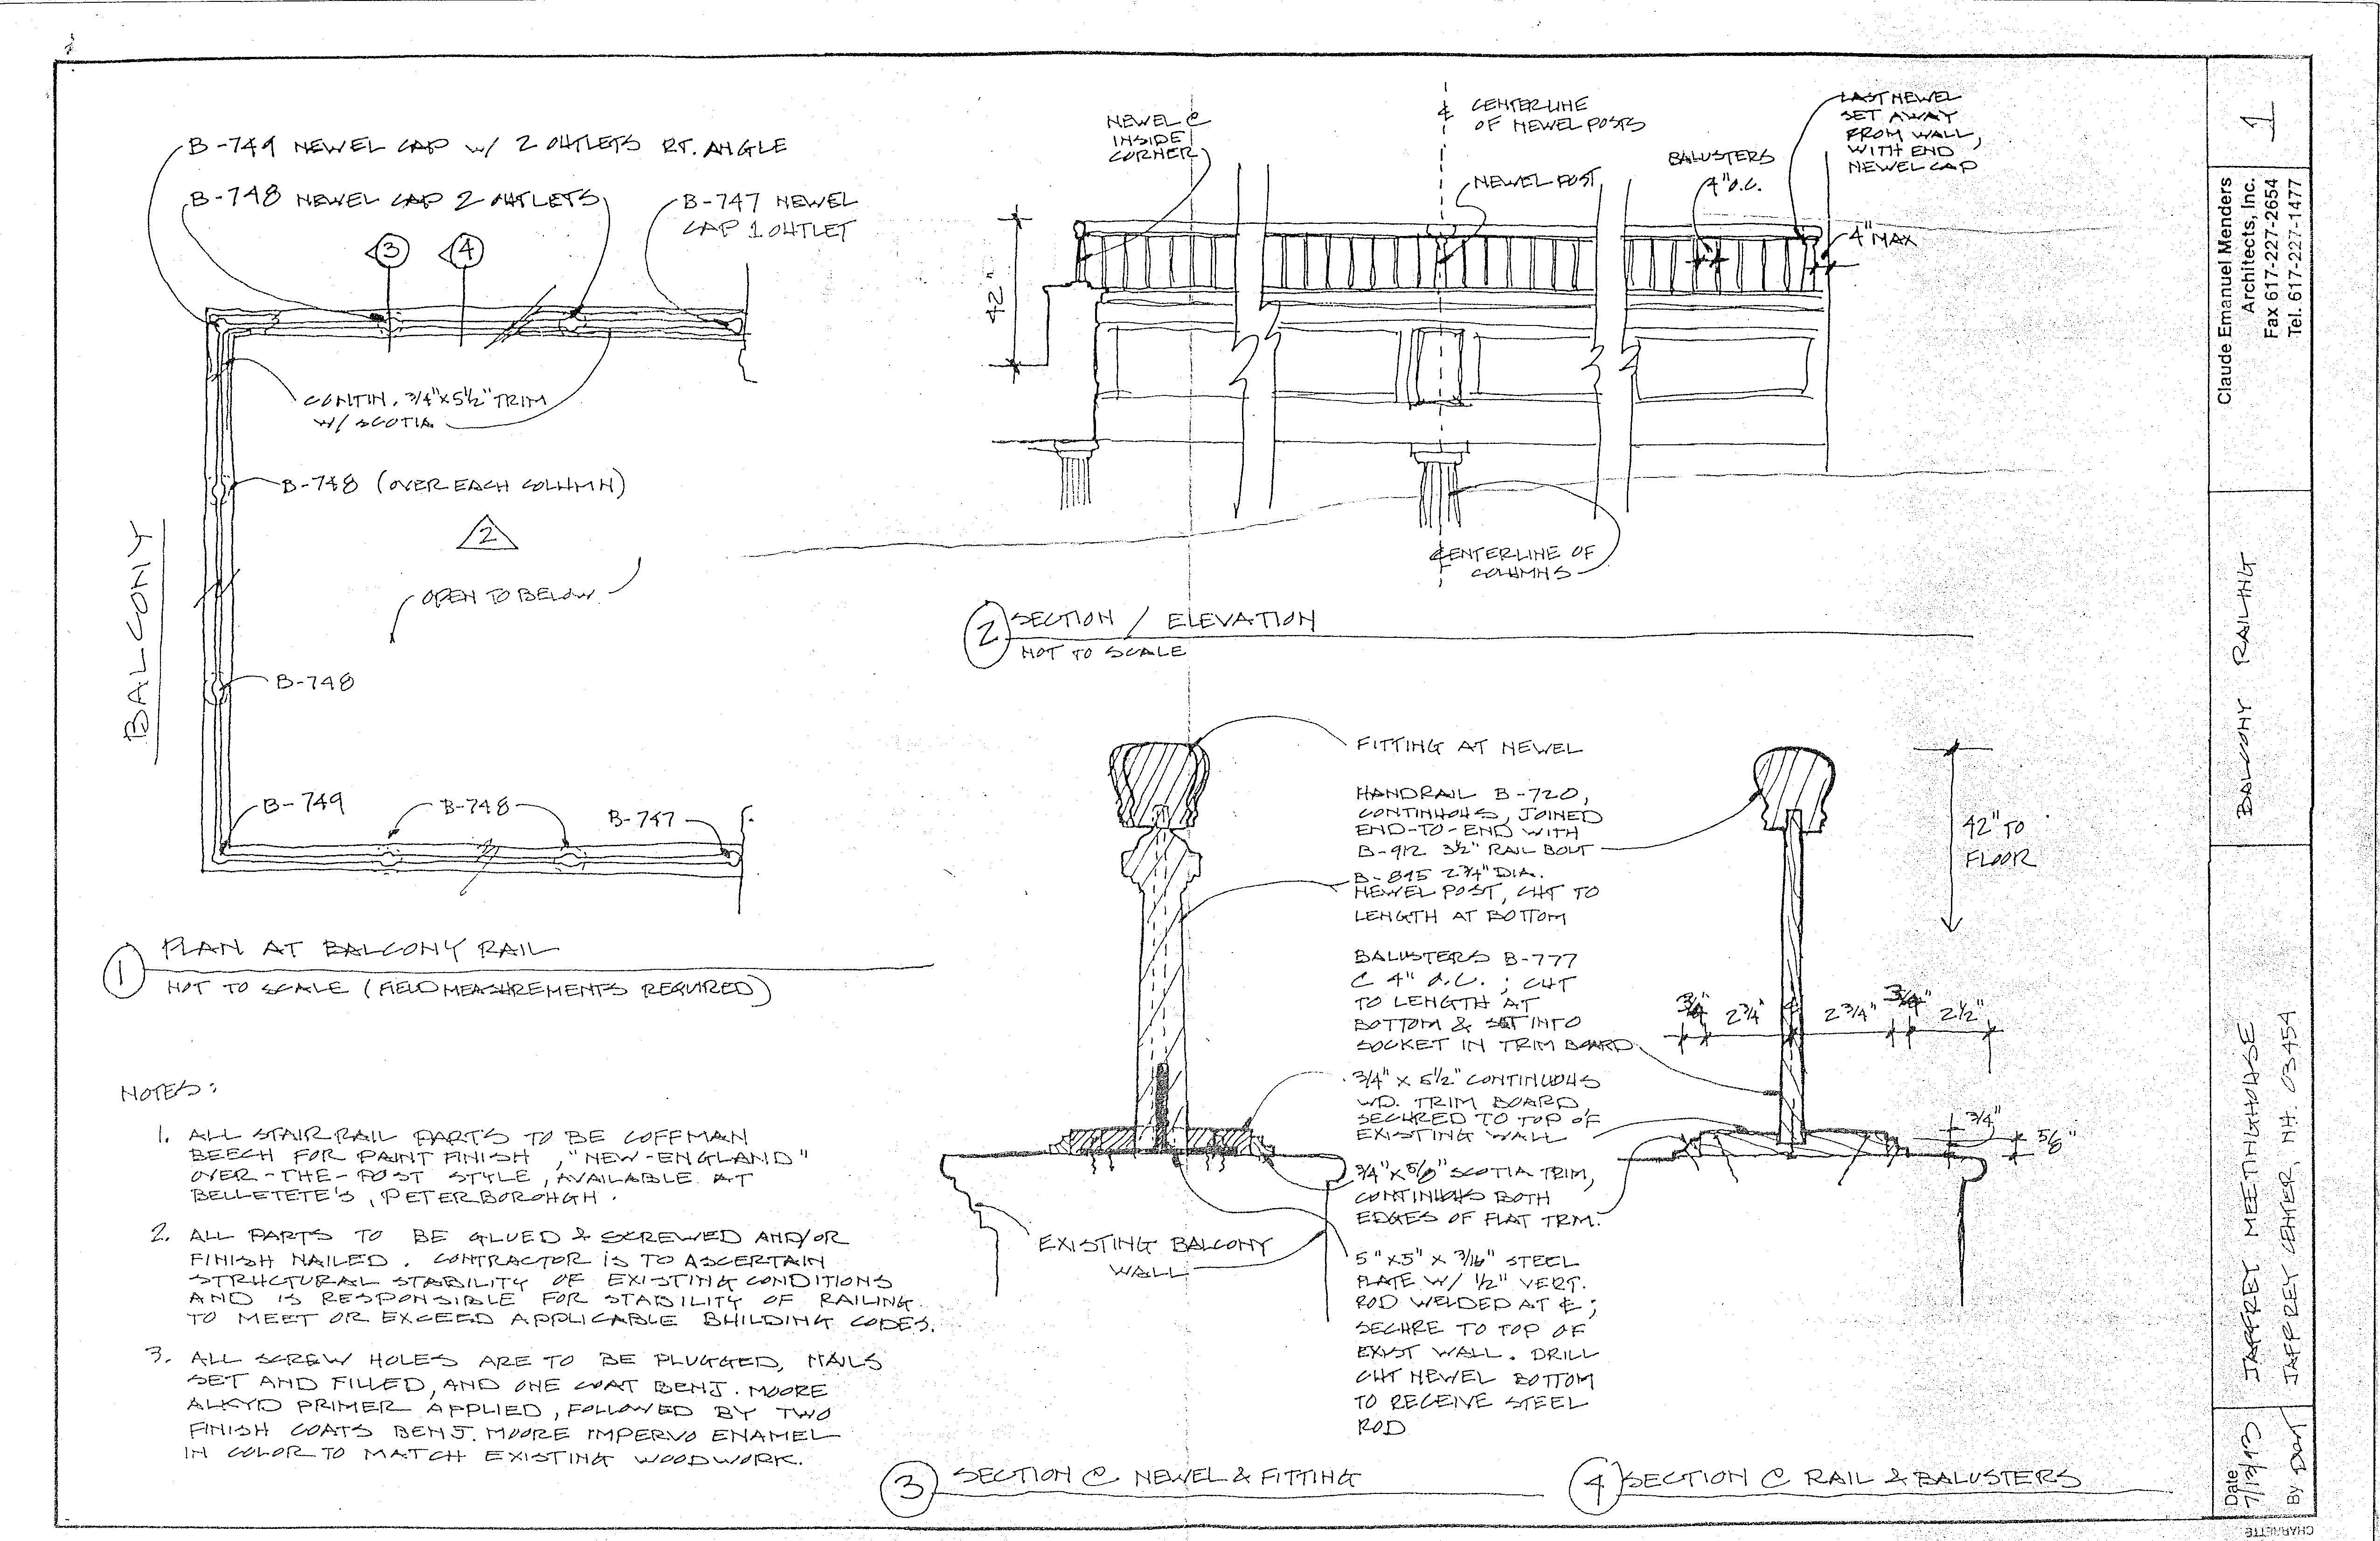 B-749 NEWEL CAP W/ 2 OUTLETS RT. ANGLE
B-748 NEWEL CAP 2 OUTLETS
B-747 NEWEL
CAP 1 OUTLET
3
4
CONTIN. 3/4"x5½" TRIM
W/ SCOTIA
B-748 (OVER EACH COLUMN)
2
OPEN TO BELOW
BALCONY
B-748
B-749
B-748
B-747
1 PLAN AT BALCONY RAIL
NOT TO SCALE (FIELD MEASUREMENTS REQUIRED)
NOTES:
1. ALL STAIR RAIL PARTS TO BE COFFMAN
BEECH FOR PAINT FINISH, "NEW-ENGLAND"
OVER-THE-POST STYLE, AVAILABLE AT
BELLETETE'S, PETERBOROUGH.
2. ALL PARTS TO BE GLUED & SCREWED AND/OR
FINISH NAILED. CONTRACTOR IS TO ASCERTAIN
STRUCTURAL STABILITY OF EXISTING CONDITIONS
AND IS RESPONSIBLE FOR STABILITY OF RAILING
TO MEET OR EXCEED APPLICABLE BUILDING CODES.
3. ALL SCREW HOLES ARE TO BE PLUGGED, NAILS
SET AND FILLED, AND ONE COAT BENJ. MOORE
ALKYD PRIMER APPLIED, FOLLOWED BY TWO
FINISH COATS BENJ. MOORE IMPERVO ENAMEL
IN COLOR TO MATCH EXISTING WOODWORK.
NEWEL @
INSIDE
CORNER
CENTERLINE
OF NEWEL POSTS
NEWEL POST
BALUSTERS
4" O.C.
LAST NEWEL
SET AWAY
FROM WALL,
WITH END
NEWEL CAP
4" MAX
42"
CENTERLINE OF
COLUMNS
2 SECTION / ELEVATION
NOT TO SCALE
FITTING AT NEWEL
HANDRAIL B-720,
CONTINUOUS, JOINED
END-TO-END WITH
B-912 3½" RAIL BOLT
B-845 2¾" DIA.
NEWEL POST, CUT TO
LENGTH AT BOTTOM
BALUSTERS B-777
@ 4" O.C.; CUT
TO LENGTH AT
BOTTOM & SET INTO
SOCKET IN TRIM BOARD
3/4" x 5½" CONTINUOUS
WD. TRIM BOARD,
SECURED TO TOP OF
EXISTING WALL
3/4"x5/8" SCOTIA TRIM,
CONTINUOUS BOTH
EDGES OF FLAT TRIM.
5"x5" x 3/16" STEEL
PLATE W/ ½" VERT.
ROD WELDED AT ℄;
SECURE TO TOP OF
EXIST WALL. DRILL
OUT NEWEL BOTTOM
TO RECEIVE STEEL
ROD
EXISTING BALCONY
WALL
42" TO
FLOOR
3/4" 2¾" 2¾" 3/4" 2½"
3/4"
5/8"
3 SECTION @ NEWEL & FITTING
4 SECTION @ RAIL & BALUSTERS
1
Claude Emanuel Menders
Architects, Inc.
Fax 617-227-2654
Tel. 617-227-1477
BALCONY RAILING
JAFFREY MEETINGHOUSE
JAFFREY CENTER, NH. 03454
Date
7/13/93
By
CHARRETTE